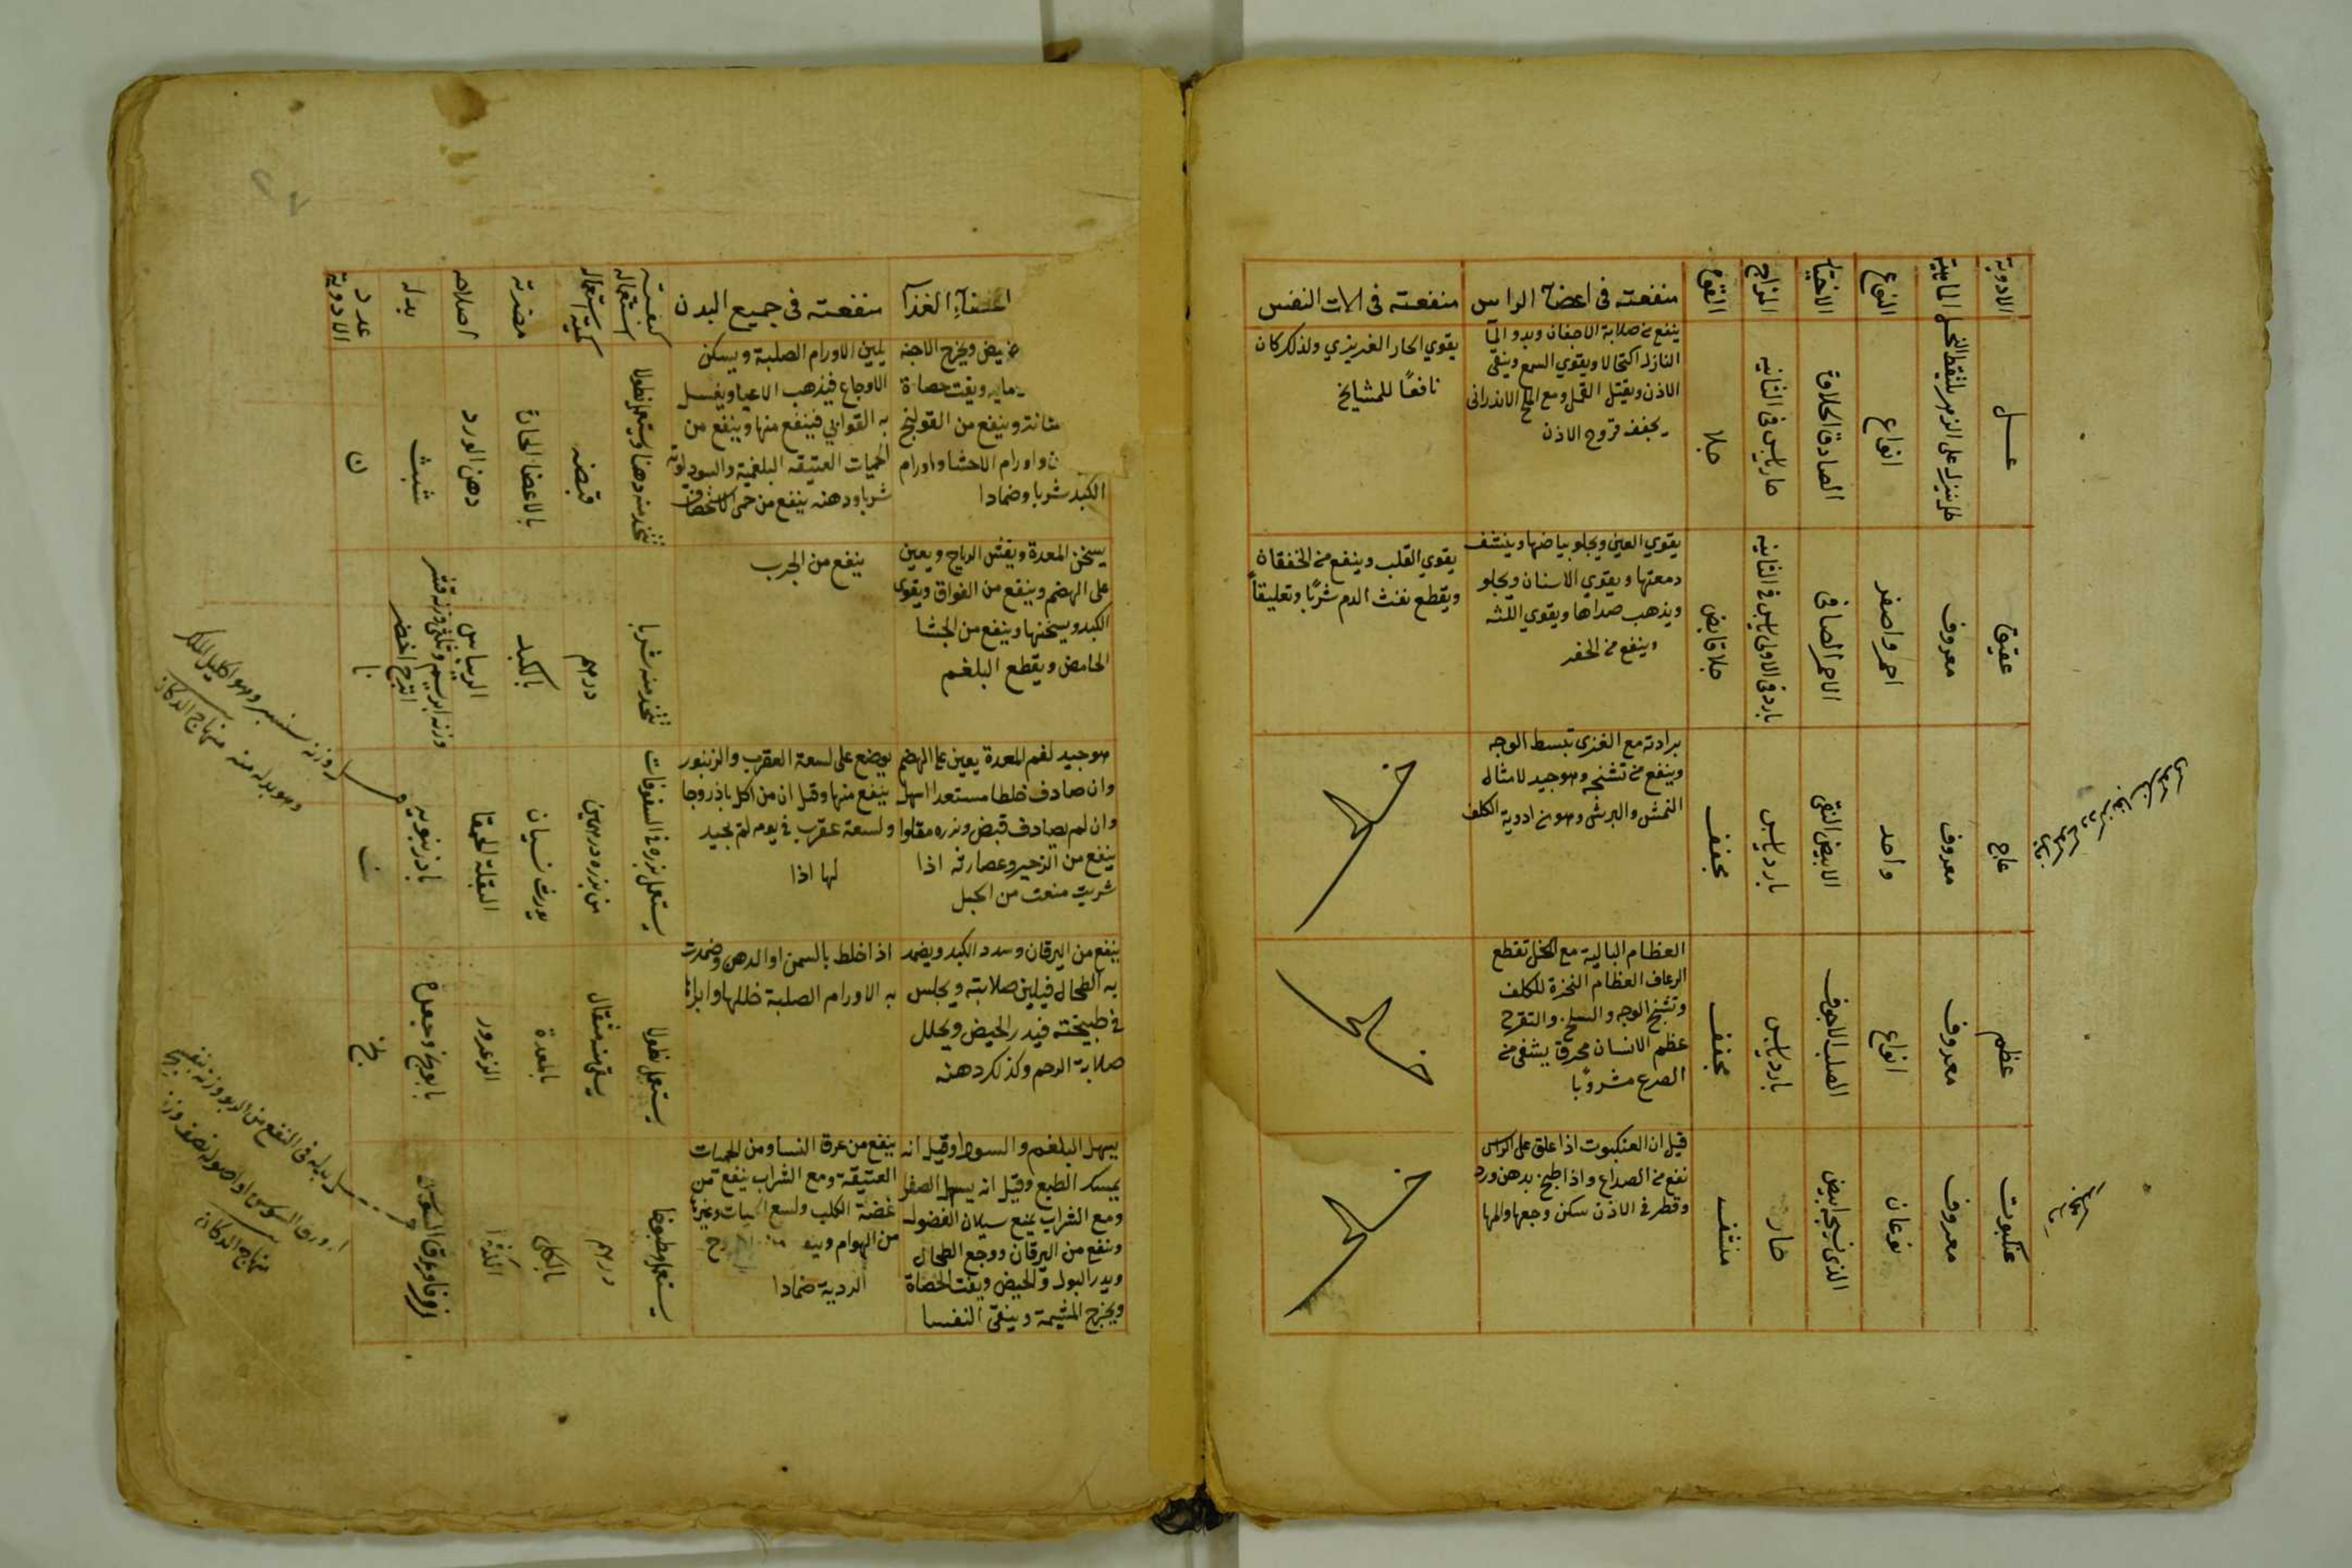 الادوية
الماهية
النوع
الاختيار
المزاج
القوة
منفعته في اعضآ الراس
منفعته في الات النفس
عسل
طل ينزل على الزهر يلتقطه النحل
انواع
الصادق الحلاوة
حار يابس في الثانيه
جلا
ينفع من صلابة الاجفان وبدو المآ
النازل اكتحالا ويقوي السمع وينقي
الاذن ويقتل القمل ومع الملح الاندراني
يجفف قروح الاذن
يقوي الحار الغريزي ولذلك كان
نافعًا للمشايخ
عقيق
معروف
احمر واصفر
الاحمر الصافي
بارد في الاولى يابس في الثانيه
جلا قابض
يقوي العين ويجلو بياضها وينشف
دمعتها ويقوي الاسنان ويجلو
ويذهب صداها ويقوي اللثه
وينفع من الحفر
يقوي القلب وينفع من الخفقان
ويقطع نفث الدم شربًا وتعليقاً
عاج
معروف
واحد
الابيض النقي
بارد يابس
مجفف
برادته مع الغرى تبسط الوجه
وينفع من تشنجه وهو جيد لامثال
النمش والبرش وهو من ادوية الكلف
عظم
معروف
انواع
الصلب الاجوف
بارد يابس
مجفف
العظام البالية مع الخل تقطع
الرعاف العظام النخرة للكلف
وتشنج الوجه والسلخ والتقرح
عظم الانسان محرق يشفي من
الصرع مشروبًا
عنكبوت
معروف
نوعان
الذي نسجه ابيض
حار
منشف
قيل ان العنكبوت اذا علق على الراس
نفع من الصداع واذا طبخ بدهن ورد
وقطر في الاذن سكن وجعها والمها
اعضآءِ الغذآ
منفعته في جميع البدن
كيفية استعماله
كمية استعماله
مضرته
اصلاحه
بدله
عدد الادوية
حيض ويخرج الاجنه
ويفت حصاة
مثانته وينفع من القولنج
واورام الاحشا واورام
الكبد شربا وضمادا
يلين الاورام الصلبة ويسكن
الاوجاع فيذهب الاعيا ويغسل
به القوابي فينفع منها وينفع من
الحميات العتيقه البلغمية والسوداويه
شربا ودهنه ينفع من حمى
يتخذ منه دهنا ويستعمل نطولا
قبضه
بالاعضا الحارة
دهن الورد
شبث
ن
يسخن المعدة ويفش الرياح ويعين
على الهضم وينفع من الفواق ويقوي
الكبد ويسخنها وينفع من الجشا
الحامض ويقطع البلغم
ينفع من الجرب
يتخذ منه شربا
درهم
بالكبد
الريباس
وزنه ابريسم وثلثي وزنه قشر
اترج اخضر
نا
هو جيد لفم المعدة يعين على الهضم
وان صادف خلطا مستعدا اسهل
وان لم يصادف قبض وبزره مقلوا
ينفع من الزحير وعصارته اذا
شربت منعت من الحبل
يوضع على لسعة العقرب والزنبور
ينفع منها وقيل ان من اكل باذروجا
ولسعته عقرب في يومه لم يجيد
لها اذا
يستعمل بزره في السفوفات
من بزره درهمين
يورث نسيان
البقلة الحمقا
باذرنبويه
نب
ينفع من اليرقان وسدد الكبد ويضمد
به الطحال فيلين صلابته ويجلس
في طبيخته فيدر الحيض ويحلل
صلابة الرحم وكذلك دهنه
اذا خلط بالسمن او الدهن وضمدت
به الاورام الصلبة حللها وابراها
يستعمل نطولا
يسقى منه مثقال
بالمعدة
الزعرور
بابونج وجعدة
نج
يسهل البلغم والسودا وقيل انه
يمسك الطبع وقيل انه يسهل الصفرا
ومع الشراب يمنع سيلان الفضول
وينفع من اليرقان ووجع الطحال
ويدر البول والحيض ويفت الحصاة
ويخرج المشيمة وينقي النفسا
ينفع من عرق النسا ومن الحميات
العتيقة ومع الشراب ينفع من
عضة الكلب ولسع الحيات وغيرها
من الهوام
الردية ضمادا
يستعمل مطبوخا
درهم
بالكلى
الكثيرا
زوفا وعرق السوس
وزنه سنبر وهو اكليل الملك
وهو بدله منه منهاج الدكان
بدله في النفع من الربو وزنه
ورق السوس او اصوله نصف وزنه
منهاج الدكان